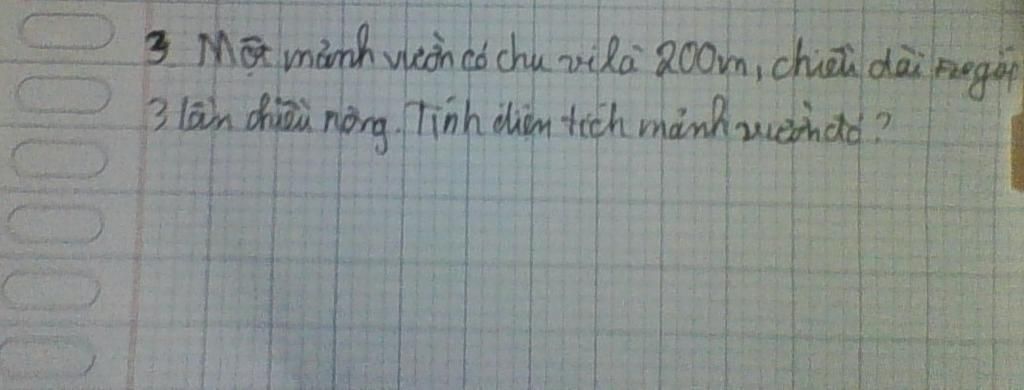 3 Một mảnh vườn có chu vi là 200m, chiều dài gấp
3 lần chiều rộng. Tính diện tích mảnh vườn đó?